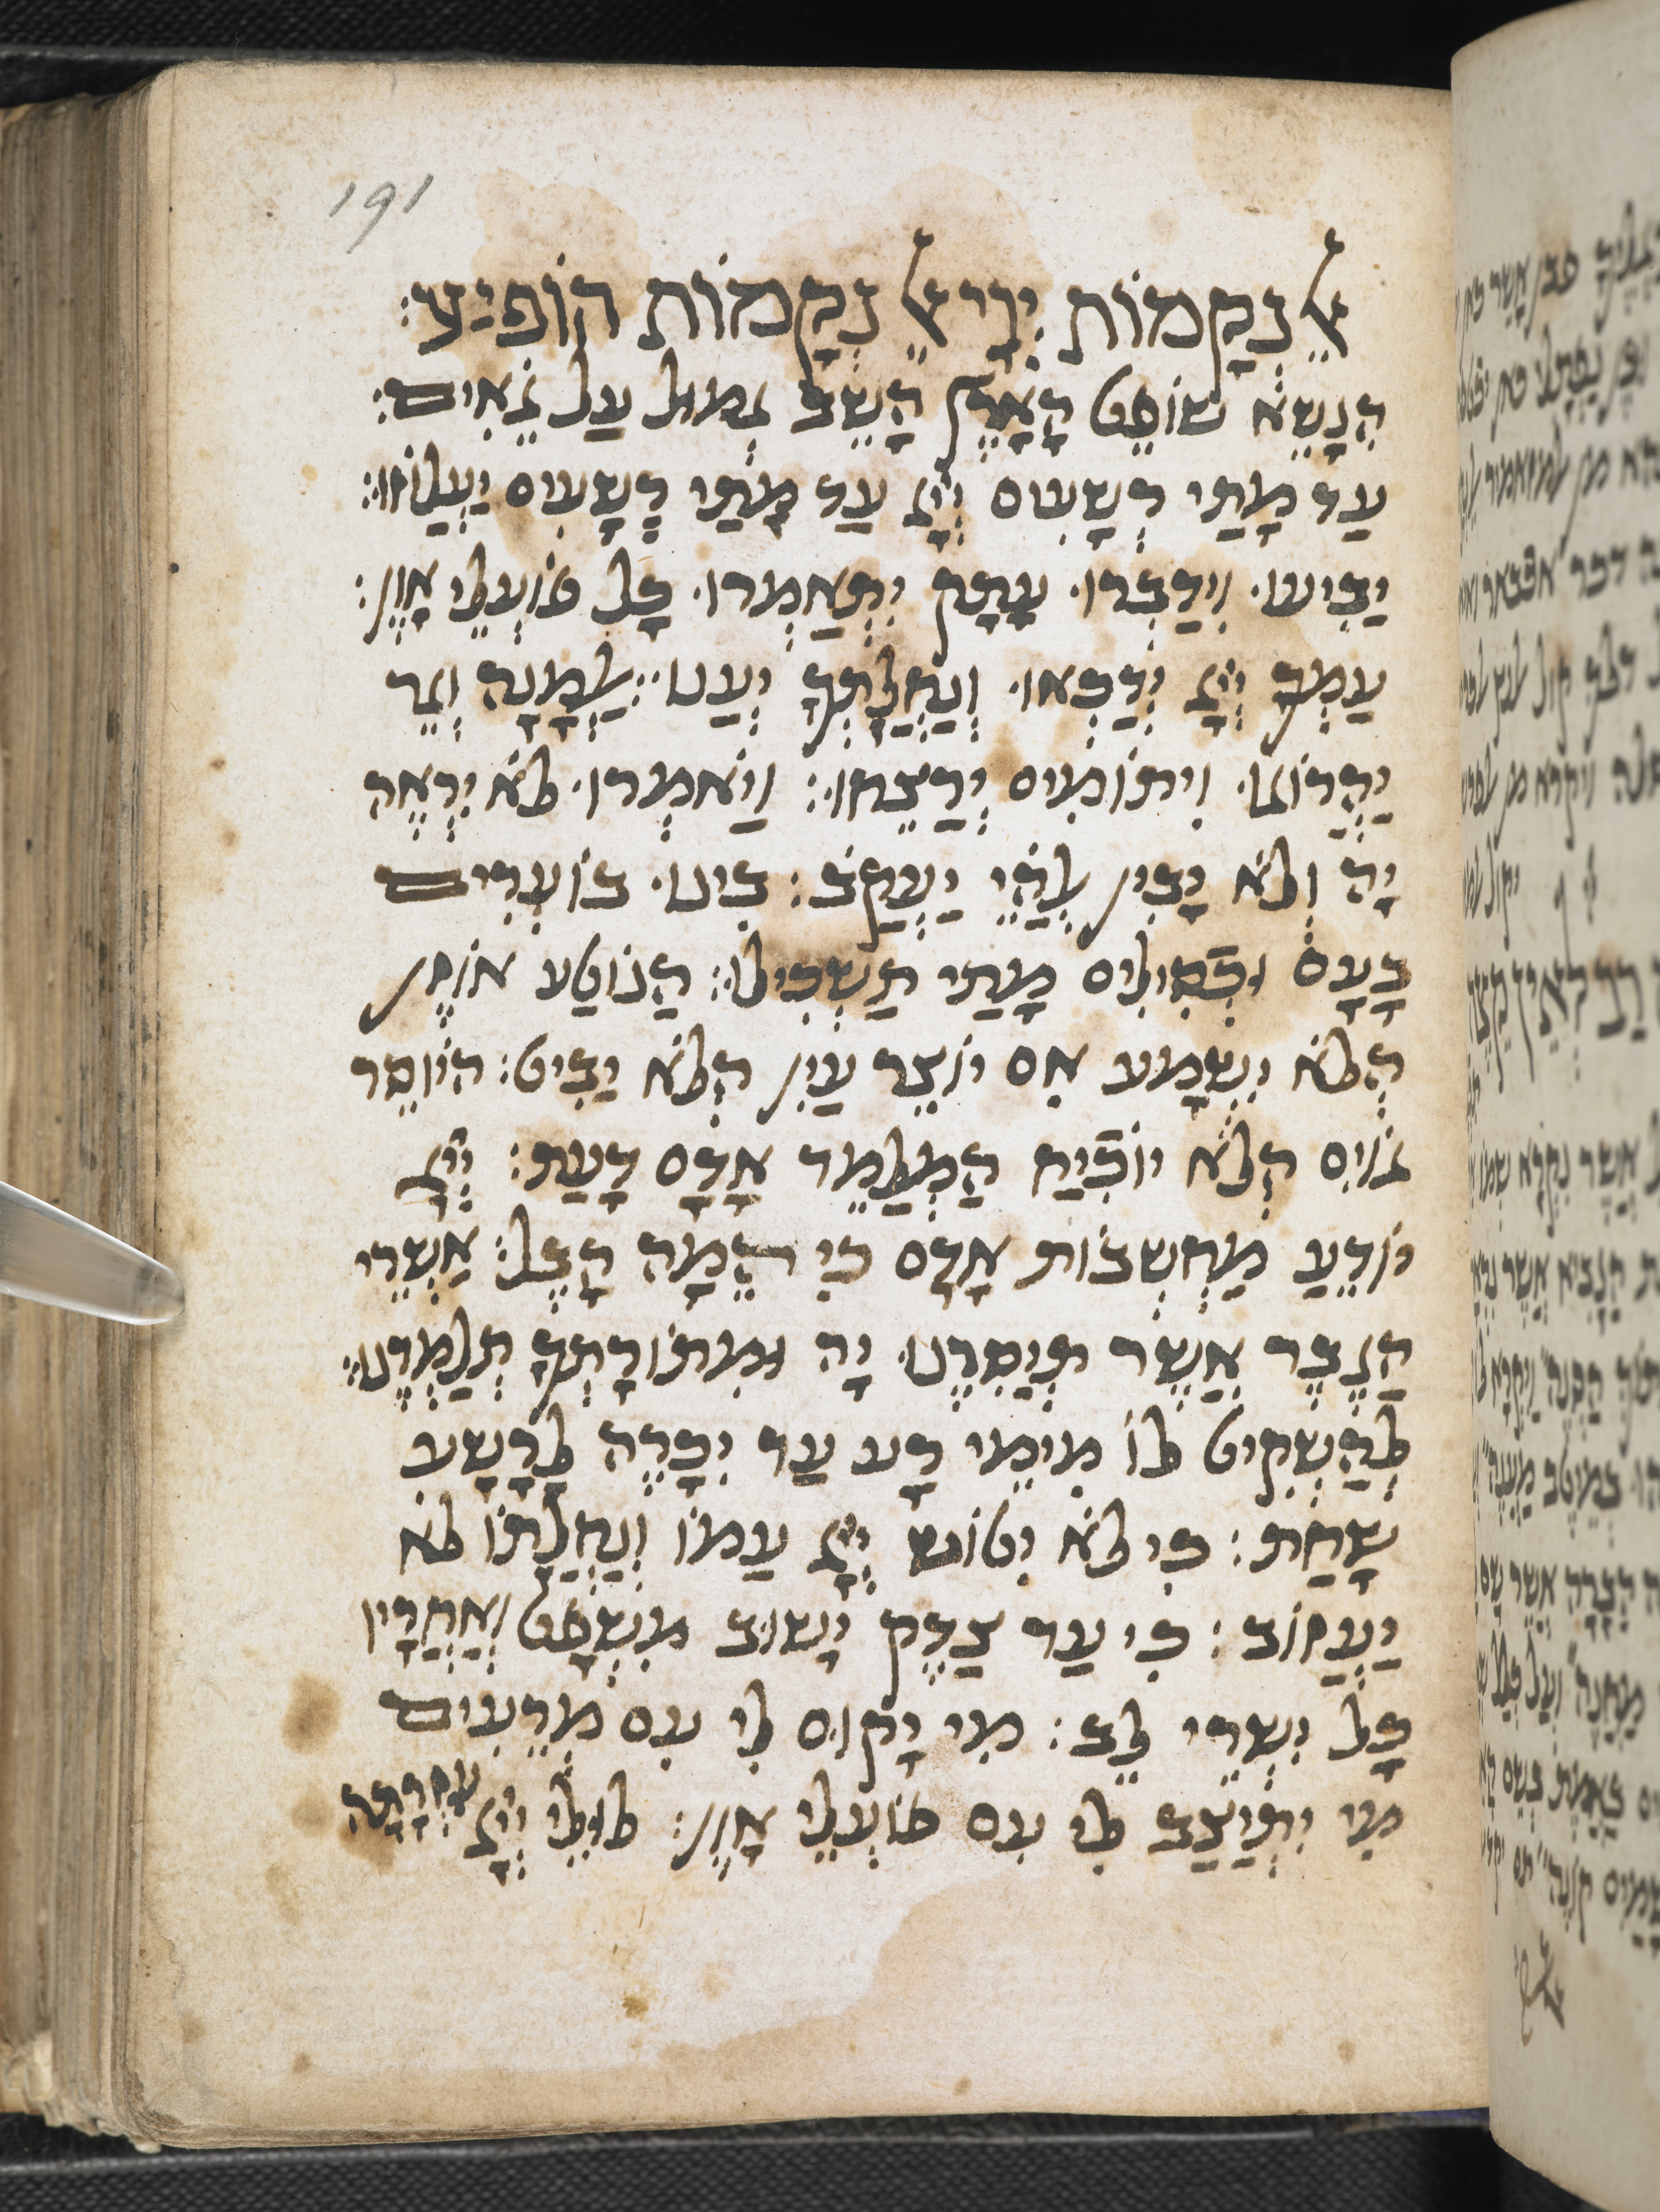 191
אל נקמות ייי אל נקמות הופיע:
הנשא שופט הארץ השב גמול על גאים:
עד מתי רשעים ייי עד מתי רשעים יעלוזו:
יביעו וידברו עתק יתאמרו כל פועלי און:
עמך ייי ידכאו ונחלתך יענו: אלמנה וגר
יהרוגו ויתומים ירצחו: ויאמרו לא יראה
יה ולא יבין אלהי יעקב: בינו בוערים
בעם וכסילים מתי תשכילו: הנוטע אוזן
הלא ישמע אם יוצר עין הלא יביט: היוסר
גוים הלא יוכיח המלמד אדם דעת: ייי
יודע מחשבות אדם כי המה הבל: אשרי
הגבר אשר תיסרנו יה ומתורתך תלמדנו:
להשקיט לו מימי רע עד יכרה לרשע
שחת: כי לא יטוש ייי עמו ונחלתו לא
יעזוב: כי עד צדק ישוב משפט ואחריו
כל ישרי לב: מי יקום לי עם מרעים
מי יתיצב לי עם פועלי און: לולי ייי עזרתה